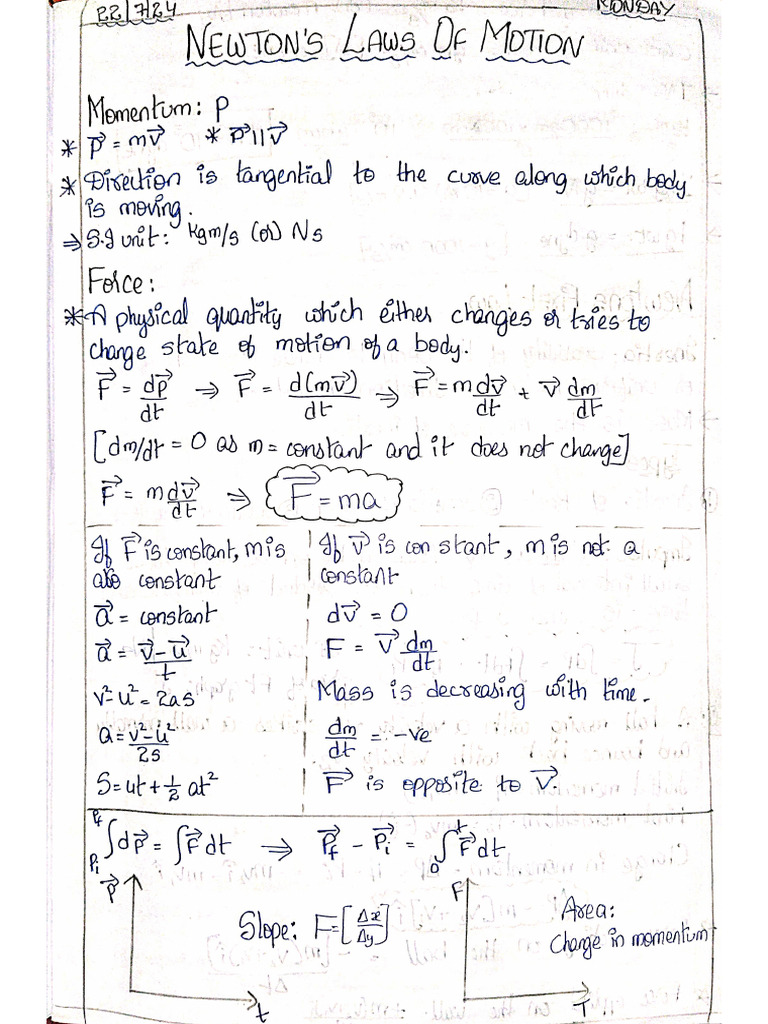 22/7/24
MONDAY
NEWTON'S LAWS OF MOTION
Momentum: P
* P⃗ = mv⃗ * P⃗ || v⃗
* Direction is tangential to the curve along which body
is moving.
⇒ S.I unit: kgm/s (or) Ns
Force:
* A physical quantity which either changes or tries to
change state of motion of a body.
F⃗ = dp⃗/dt → F⃗ = d(mv⃗)/dt → F⃗ = m dv⃗/dt + v⃗ dm/dt
[dm/dt = 0 as m = constant and it does not change]
F⃗ = m dv⃗/dt ⇒ F⃗ = ma
If F⃗ is constant, m is
also constant
a⃗ = constant
a⃗ = v⃗ - u⃗/t
v² - u² = 2as
a = v² - u²/2s
S = ut + 1/2 at²
If v⃗ is constant, m is not a
constant
dv⃗ = 0
F = v⃗ dm/dt
Mass is decreasing with time.
dm/dt = -ve
F⃗ is opposite to v⃗.
∫_Pi^Pf dP⃗ = ∫F⃗dt ⇒ P⃗f - P⃗i = ∫_0^t F⃗dt
P⃗
t
Slope: F = [Δx/Δy]
F
T
Area:
Change in momentum